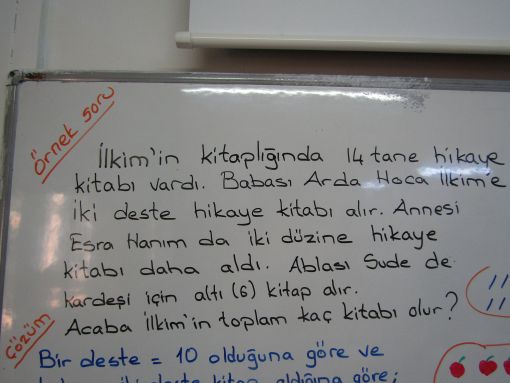 Örnek soru
İlkim'in kitaplığında 14 tane hikaye
kitabı vardı. Babası Arda Hoca İlkim'e
iki deste hikaye kitabı alır. Annesi
Esra Hanım da iki düzine hikaye
kitabı daha aldı. Ablası Sude de
kardeşi için altı (6) kitap alır.
Acaba İlkim'in toplam kaç kitabı olur?
Çözüm
Bir deste = 10 olduğuna göre ve
iki deste kitap aldığına göre;